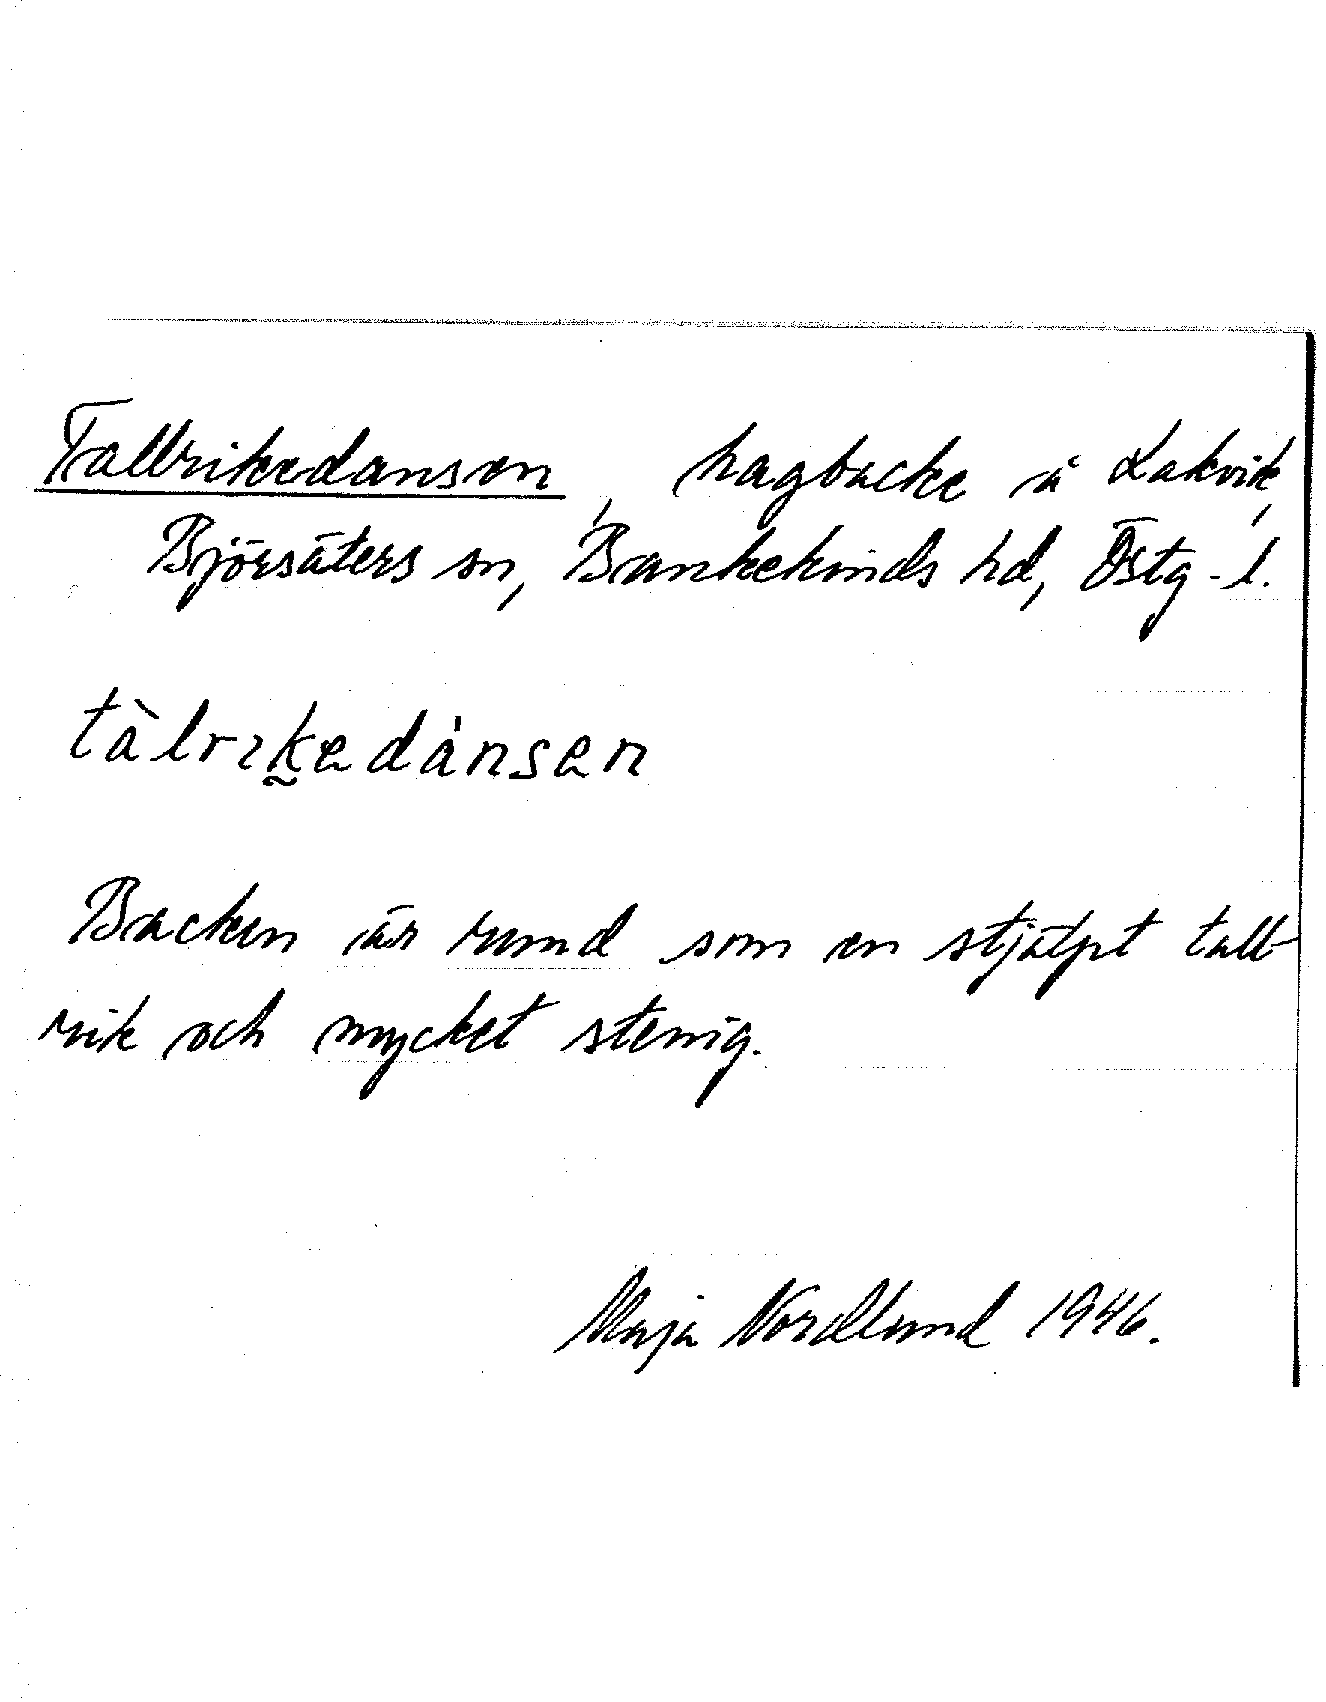 Tallrikedansen, hagbacke å Lakvik,
Björsäters sn, Bankekinds hd, Östg-l.
tàlrık̰edánsen
Backen är rund som en stjälpt tall-
rik och mycket stenig.
Maja Nordlund 1946.